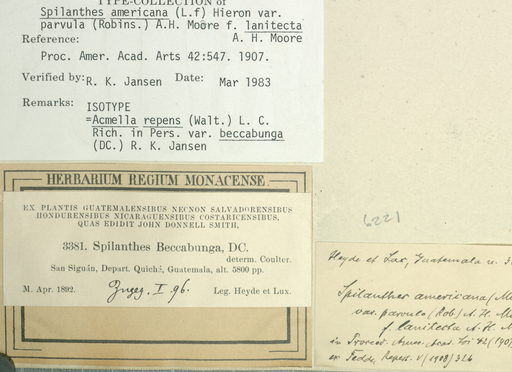 TYPE-COLLECTION of
Spilanthes americana (L.f) Hieron var.
parvula (Robins.) A.H. Moore f. lanitecta
Reference: A. H. Moore
Proc. Amer. Acad. Arts 42:547. 1907.
Verified by: R. K. Jansen Date: Mar 1983
Remarks: ISOTYPE
=Acmella repens (Walt.) L. C.
Rich. in Pers. var. beccabunga
(DC.) R. K. Jansen
HERBARIUM REGIUM MONACENSE
EX PLANTIS GUATEMALENSIBUS NECNON SALVADORENSIBUS
HONDURENSIBUS NICARAGUENSIBUS COSTARICENSIBUS,
QUAS EDIDIT JOHN DONNELL SMITH,
3381. Spilanthes Beccabunga, DC.
determ. Coulter.
San Siguán, Depart. Quiché, Guatemala, alt. 5800 pp.
M. Apr. 1892. Zugeg. I 96. Leg. Heyde et Lux.
6221
Heyde et Lux, Guatemala n. 3
Spilanthes americana
var. parvula (Rob) A. H.
f. lanitecta A. H. M
in Proceed. Amer. Acad. 42
ex Fedde, Repert. V (1908) 326